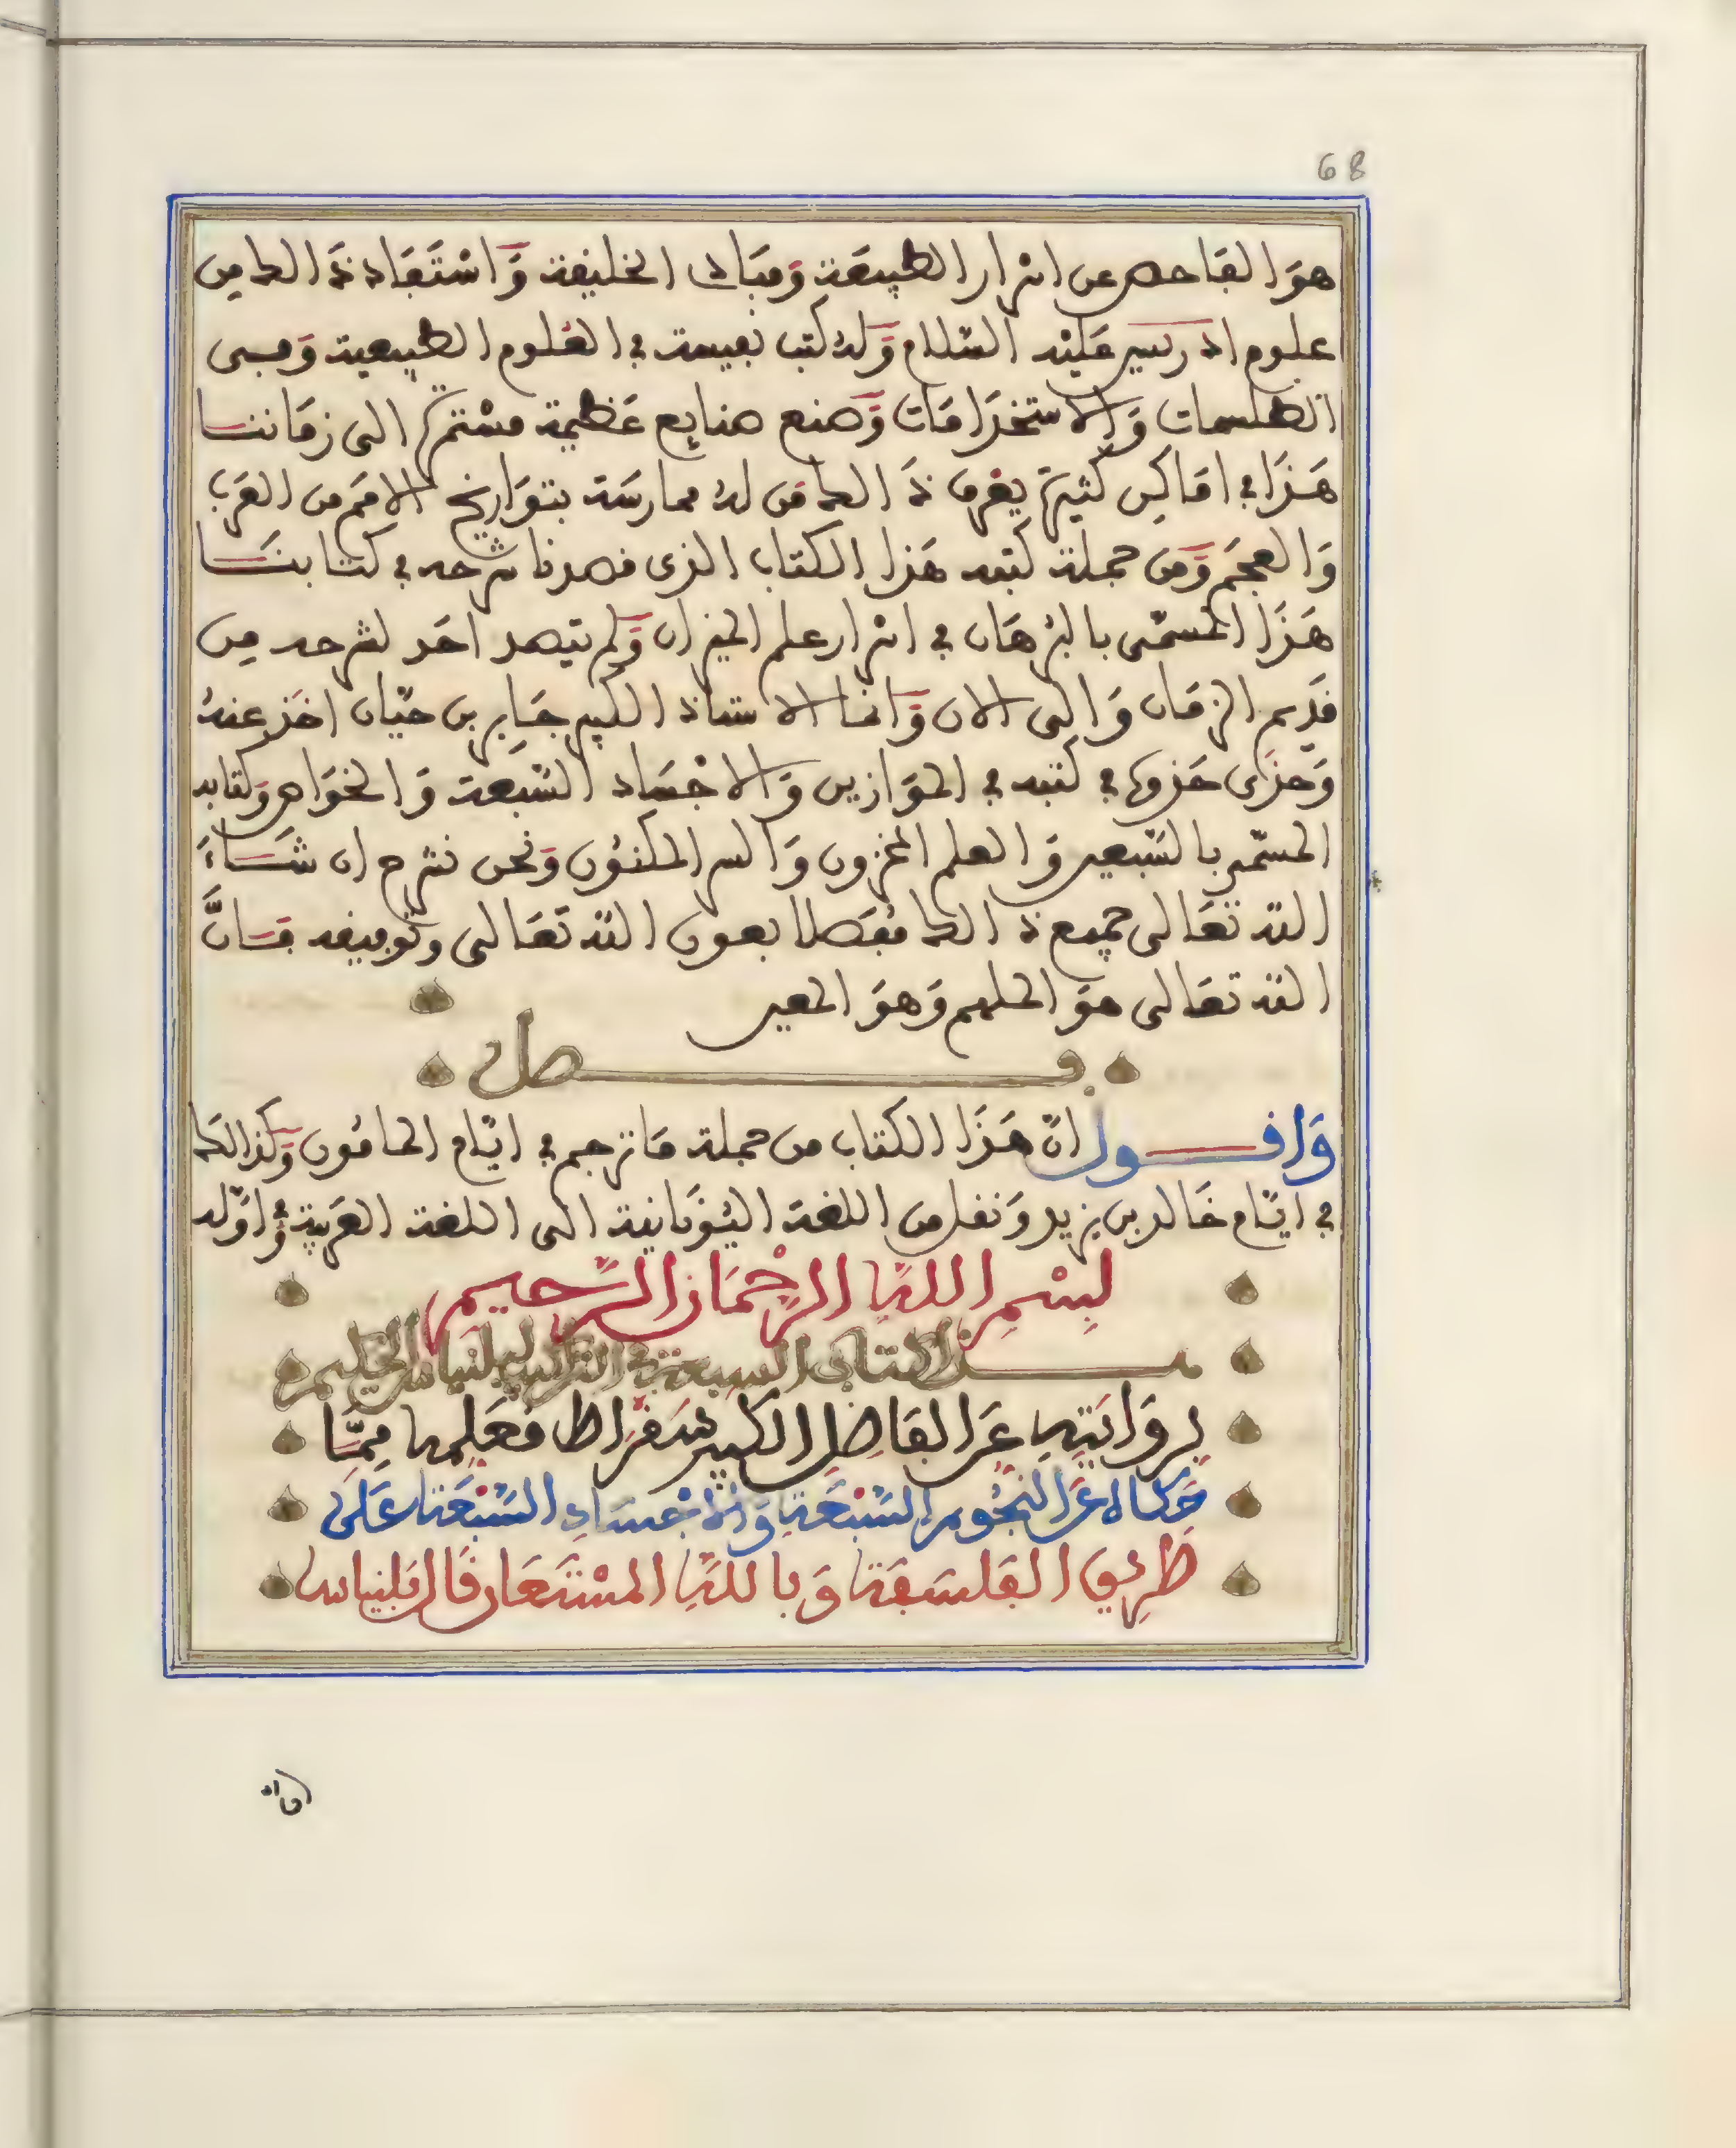 68
هوَ الفاحص عن اسرار الطبيعَة وَمبادى الخليفة وَاسْتفاد ذَالك من
علوم ادريس عَليْه السّلام وَله كتب نفيسة في العُلوم الطبيعية وَفى
الطلسمات وَالاستخدَامَات وَصنع صنايع عَظيمة مسْتمرّة الى زمَاننا
هَذَا في امَاكن كثيرة يعْرف ذَالك مَن لهُ ممارسَة بتوَاريخ الامَم من العَرب
وَالعجَم وَمن جملة كتبه هَذا الكتاب الذى قصدنا شرحه في كتابنَا
هَذَا المسمّى بالبرْهَان في اسْرار علم الميزان وَلم يتصد احَد لشرحه مِن
قدَيم الزمَان وَالى الان وَانما الاستاذ الكبير جَابر بن حَيّان اخَذ عنهُ
وَحذى حَذوه في كتبه في الموَازين وَالاجْسَاد السّبعة وَالخوَاص وَكتابه
المسمّى بالسّبعين وَالعلم المخزون وَالسر المكنوُن وَنحن نشرح ان شَاءَ
الله تعَالى جميع ذالك مُفصّلا بعون الله تَعَالى وتوفيقه فَانَّ
الله تعَالى هوَ الملهم وَهوَ المعين
فصل
وَاقول انّ هَذَا الكتاب من جملة مَا ترجم في ايّام المامُون وَكذالكَ
في ايّام خَالد بن يزيد وَنقل من اللغة اليُونانية الى اللغة العَربية وَاوّله
بِسْمِ اللهِ الرَّحْمَانِ الرَّحِيمِ
هذا كتاب السبعة في التراكيب لبلنياس الحكيم
بروَايَتِهِ عَن الفَاضِل الكَبِير سُقرَاط فعَلِمه مِمَّا
حَكاه عَن النجُوم السَّبْعَةِ وَالاجْسَادِ السَّبْعَة عَلَى
طَرِيق الفَلسَفَة وَبِاللهِ المسْتَعَان قَالَ بَلنياس